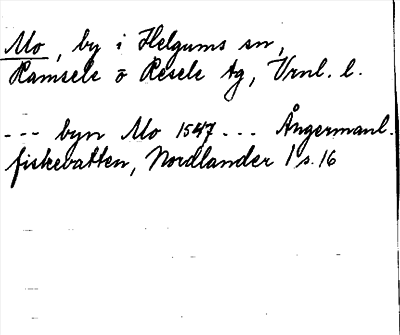 Mo, by i Helgums sn,
Ramsele o Resele tg, Vrnl. l.
--- byn Mo 1547 --- Ångermanl.
fiskevatten, Nordlander 1 s. 16